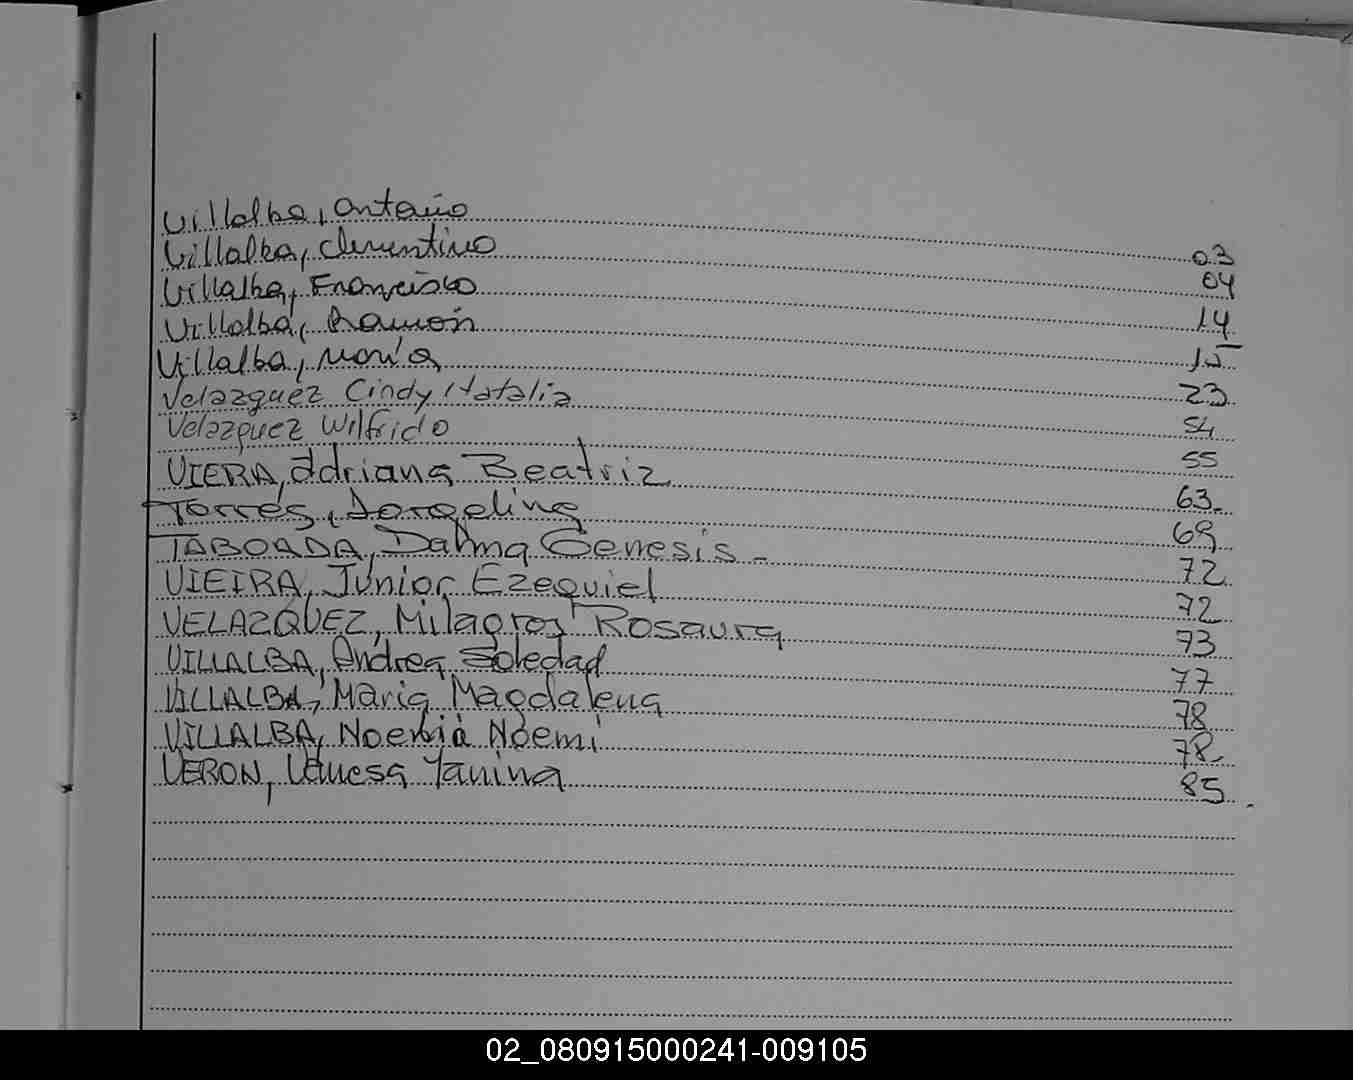 Villalba, Antonio 03
Villalba, Clementino 04
Villalba, Francisco 14
Villalba, Ramón 15
Villalba, María 23
Velazquez Cindy Natalia 54
Velazquez Wilfrido 55
VIERA, Adriana Beatriz 63.
Torres, Jorgelina 69
TABOADA, Dalma Genesis - 72
VIEIRA, Junior Ezequiel 72
VELAZQUEZ, Milagros Rosaura 73
VILLALBA, Andrea Soledad 77
VILLALBA, Maria Magdalena 78
VILLALBA, Noemi 78-
VERON, Vanesa Yanina 85
02_080915000241-009105